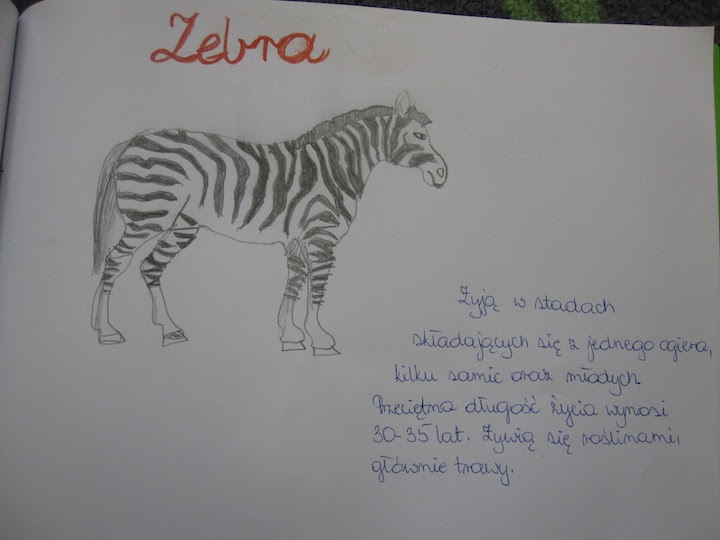 Zebra
Żyją w stadach
składających się z jednego ogiera,
kilku samic oraz młodych.
Przeciętna długość życia wynosi
30-35 lat. Żywią się roślinami,
głównie trawy.